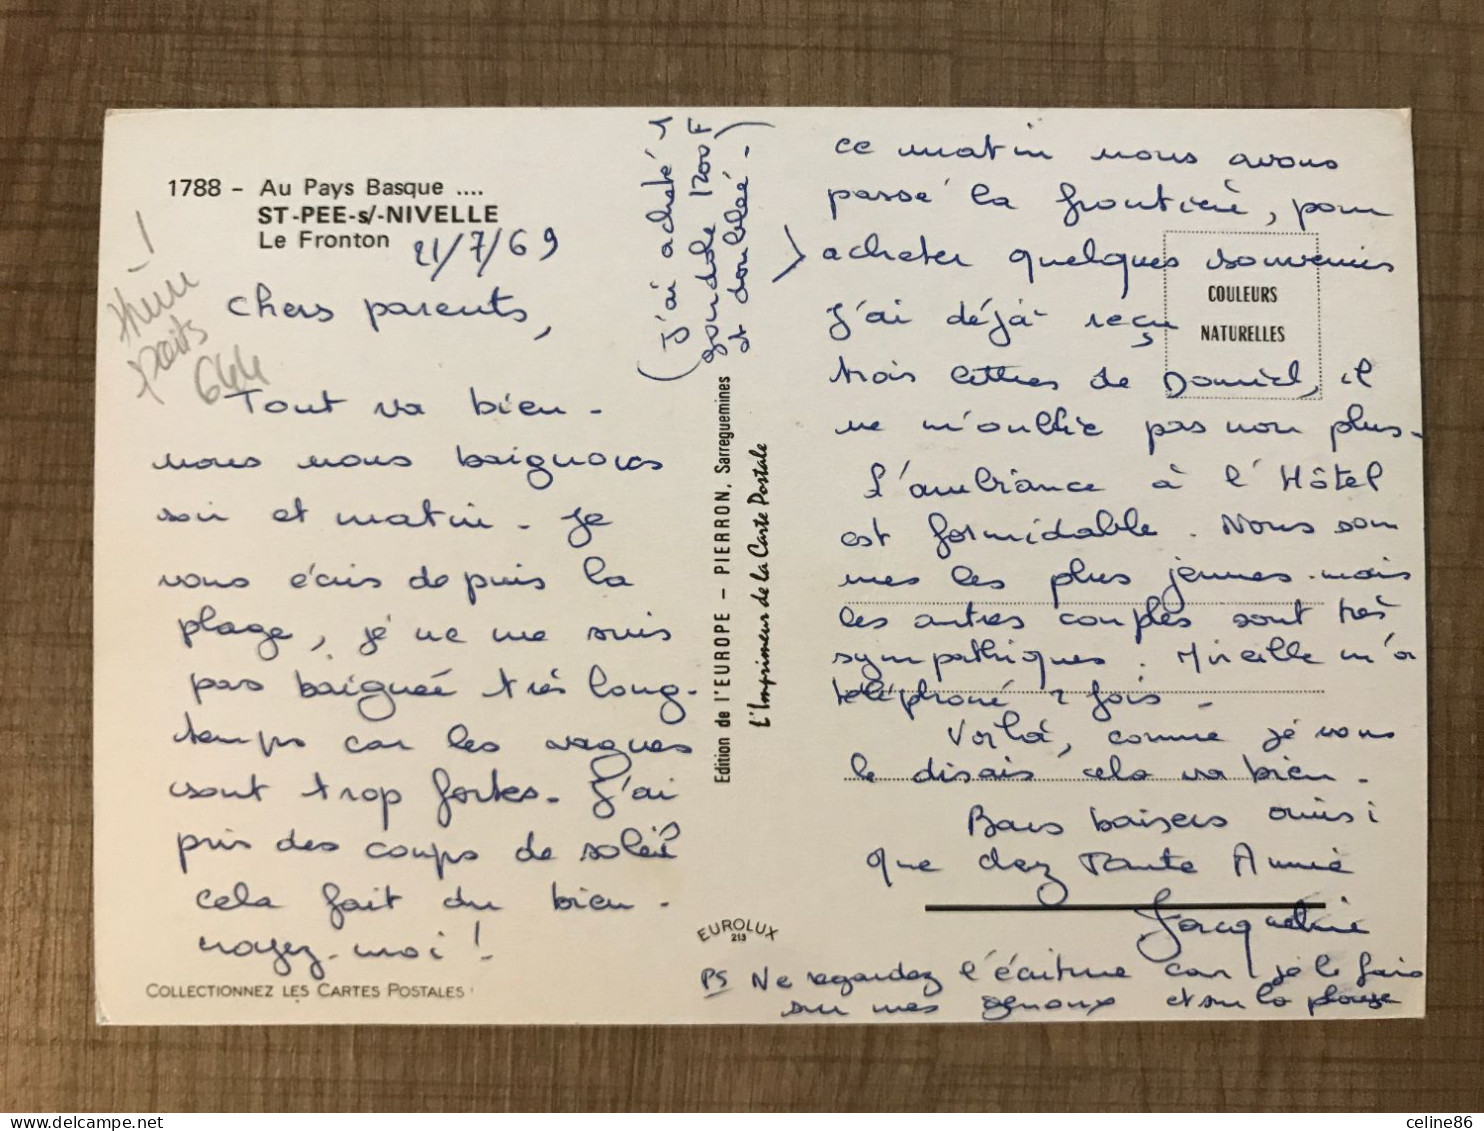 1788 - Au Pays Basque ....
ST-PEE-s/-NIVELLE
Le Fronton
21/7/69
Chers parents,
Tout va bien -
nous nous baignons
soir et matin - Je
vous écris depuis la
plage, je ne me suis
pas baignée très long-
temps car les vagues
sont trop fortes - J'ai
pris des coups de soleil
cela fait du bien -
croyez-moi !
COLLECTIONNEZ LES CARTES POSTALES
644
(J'ai acheté 1
gourde 1200 F
et doublée -)
Edition de l'EUROPE - PIERRON, Sarreguemines
L'Imprimeur de la Carte Postale
EUROLUX
213
ce matin nous avons
passé la frontière, pour
acheter quelques souvenirs
COULEURS
NATURELLES
J'ai déjà reçu
trois lettres de Daniel, il
ne m'oublie pas non plus -
L'ambiance à l'Hôtel
est formidable. Nous som
mes les plus jeunes mais
les autres couples sont très
sympathiques. Mireille m'a
téléphoné 2 fois -
Voilà, comme je vous
le disais cela va bien -
Bons baisers ainsi
que chez Tante Annie
Jacqueline
PS Ne regardez l'écriture car je le fais
sur mes genoux et sur la plage
celine86